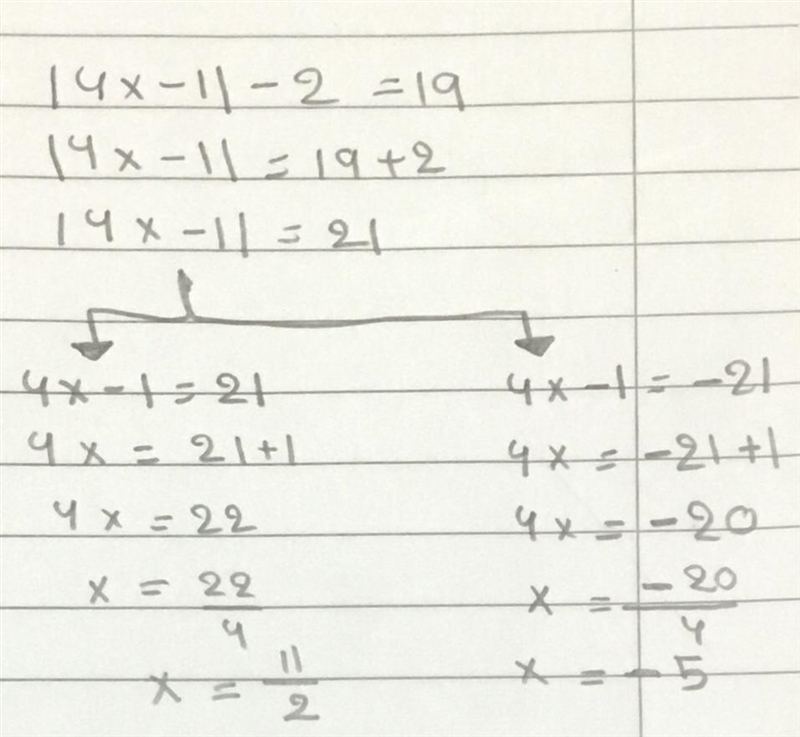 |4x-1| - 2 = 19
|4x-1| = 19+2
|4x-1| = 21
4x-1 = 21
4x = 21+1
4x = 22
x = 22/4
x = 11/2
4x-1 = -21
4x = -21+1
4x = -20
x = -20/4
x = -5